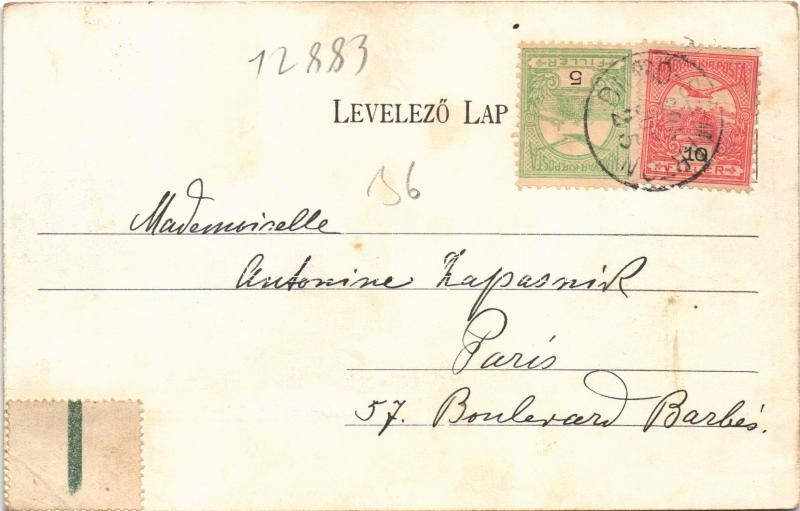 12883
LEVELEZŐ LAP
FILLÉR
5
MAGYAR·KIR·POSTA
10
FILLÉR
36
Mademoiselle
Antonine Zapasnik
Paris
57. Boulevard Barbés.